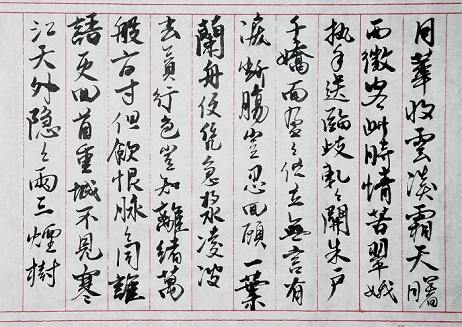 月華收雲淡霜天曙
西徵客此時情苦翠娥
执手送臨歧軋々開朱戶
千嬌面盈々佇立無言有
淚斷腸豈忍回顧一葉
蘭舟便恁急槳凌波
去貪行色豈知離緒萬
般方寸但飲恨脉々同誰
語更回首重城不見寒
江天外隐々兩三煙樹